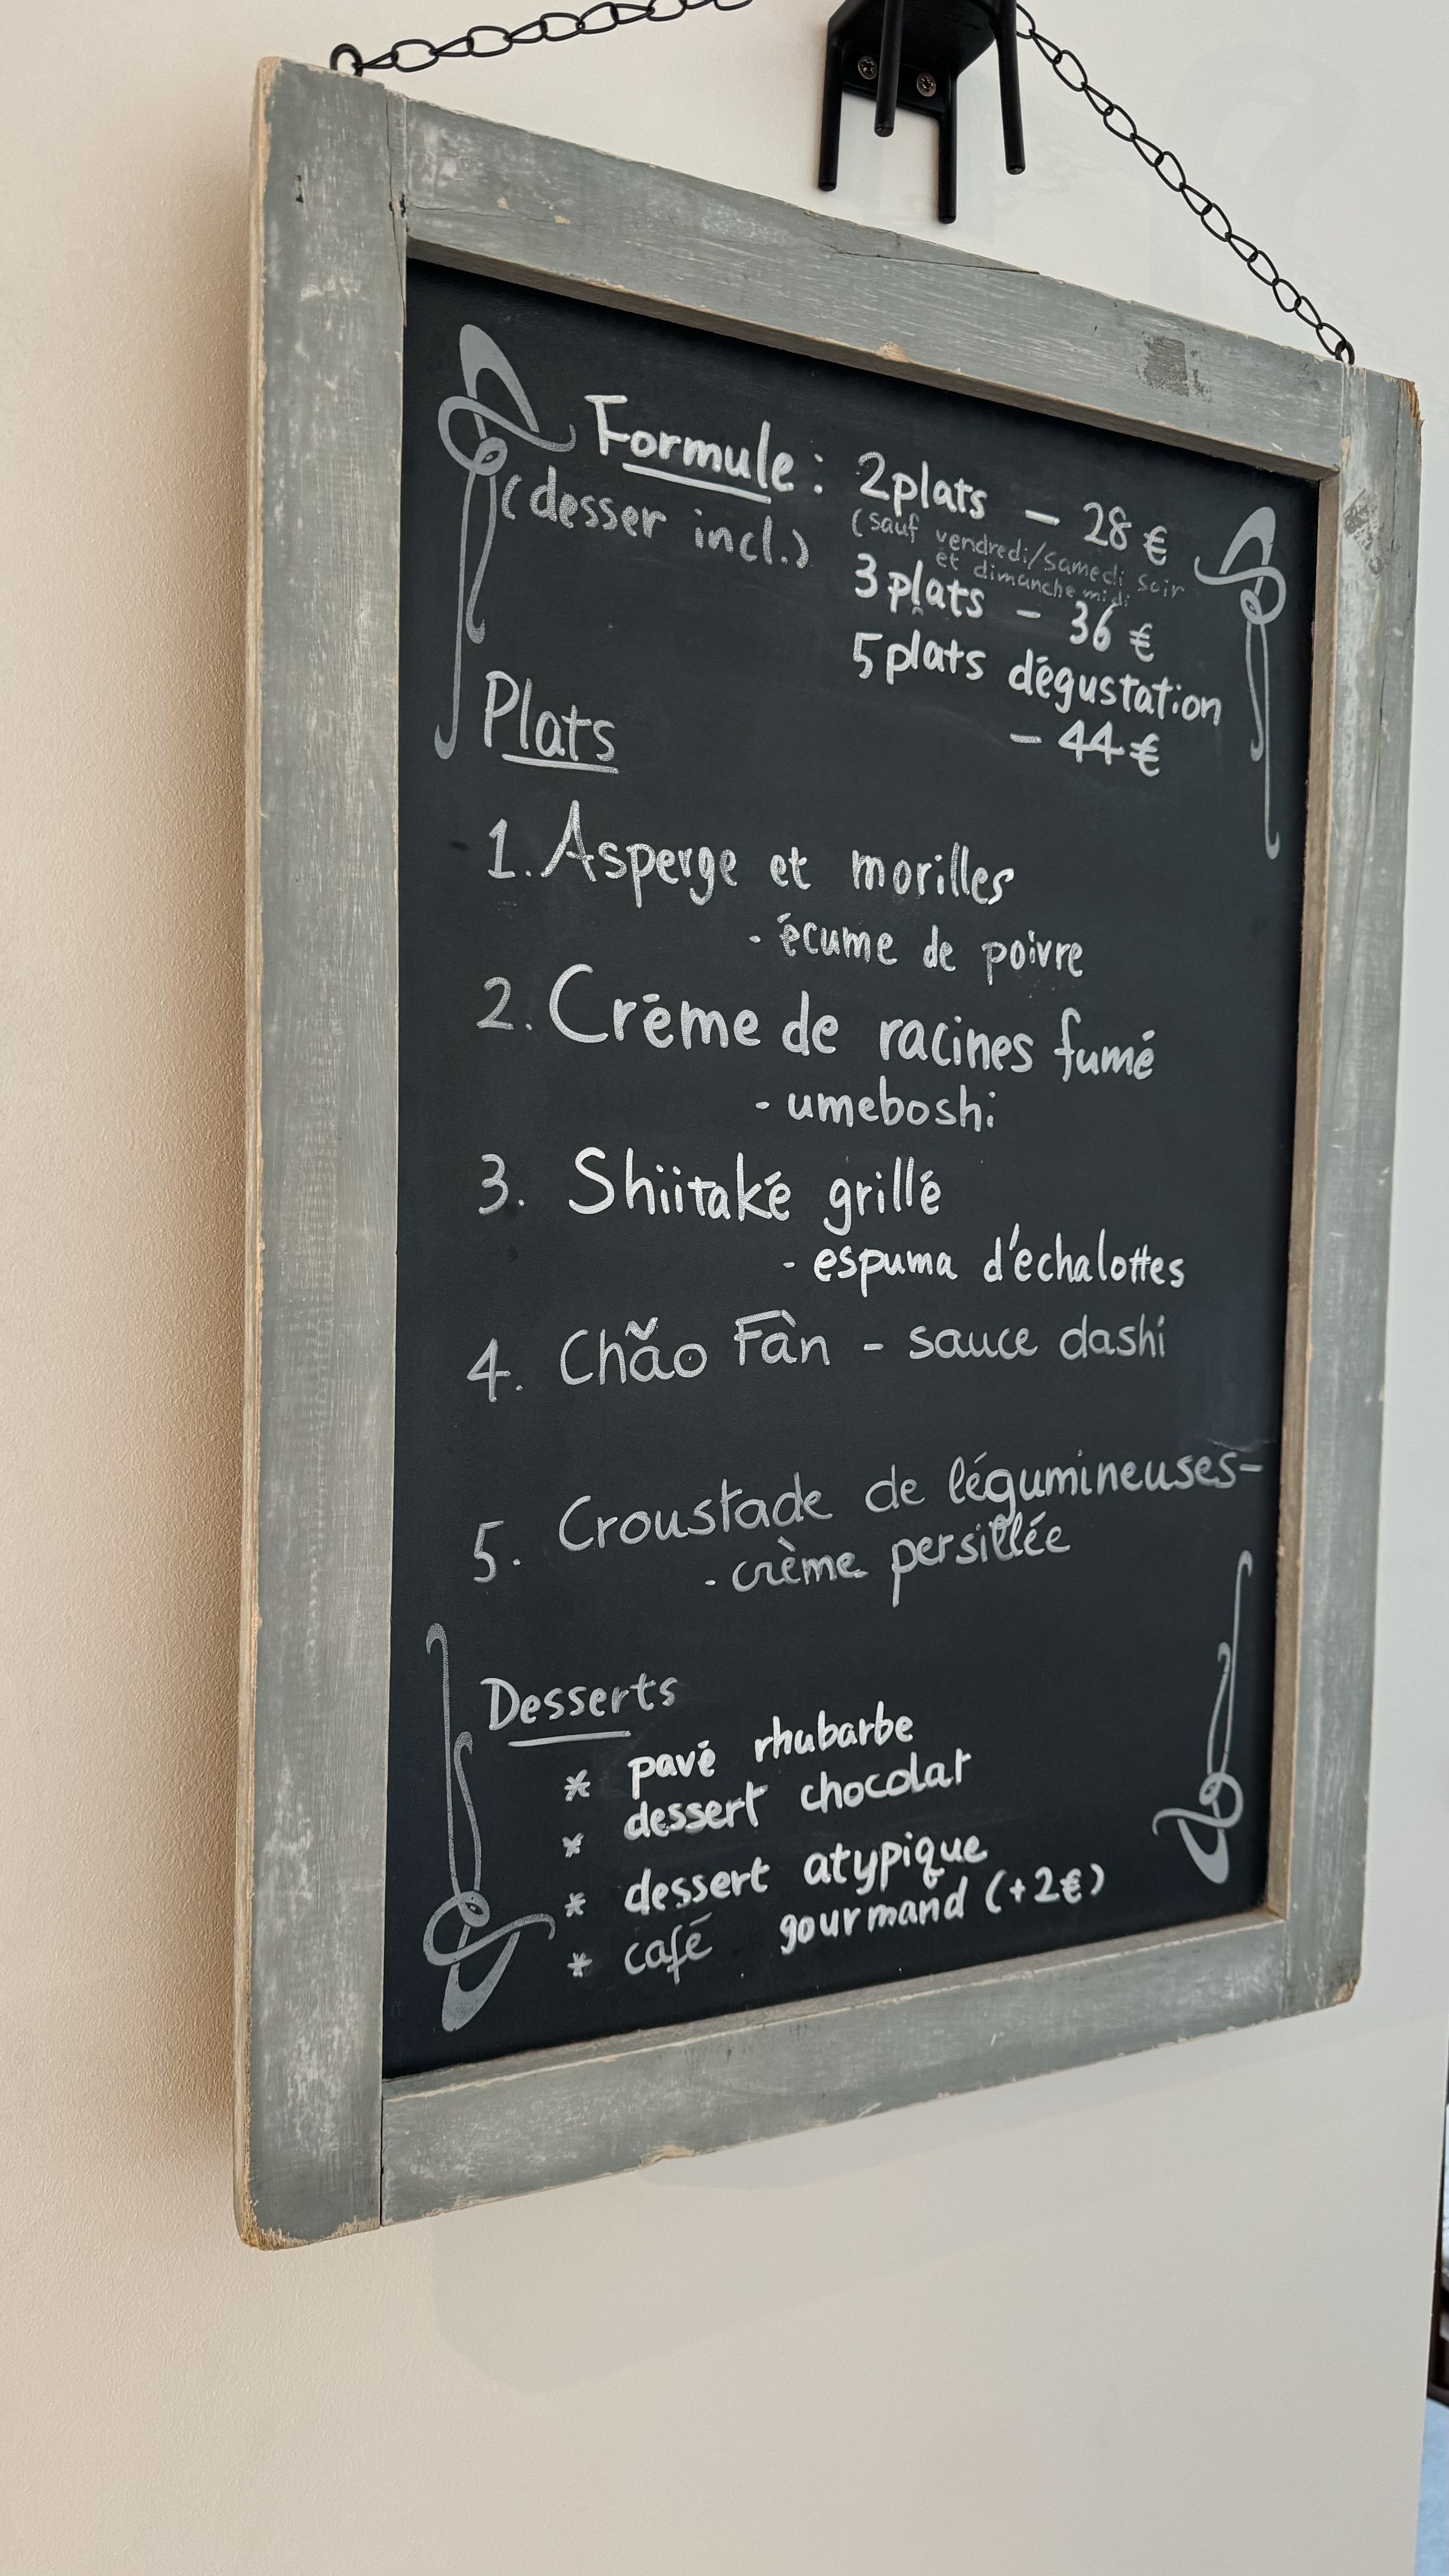 Formule : 2plats - 28 €
(desser incl.)
(sauf vendredi/samedi soir
et dimanche midi
3 plats - 36 €
5 plats dégustation
- 44 €
Plats
1. Asperge et morilles
- écume de poivre
2. Créme de racines fumé
- umeboshi
3. Shiitaké grillé
- espuma d'échalottes
4. Chǎo Fàn - sauce dashi
5. Croustade de légumineuses-
- crème persillée
Desserts
* pavé rhubarbe
* dessert chocolat
* dessert atypique
* café gourmand (+2€)